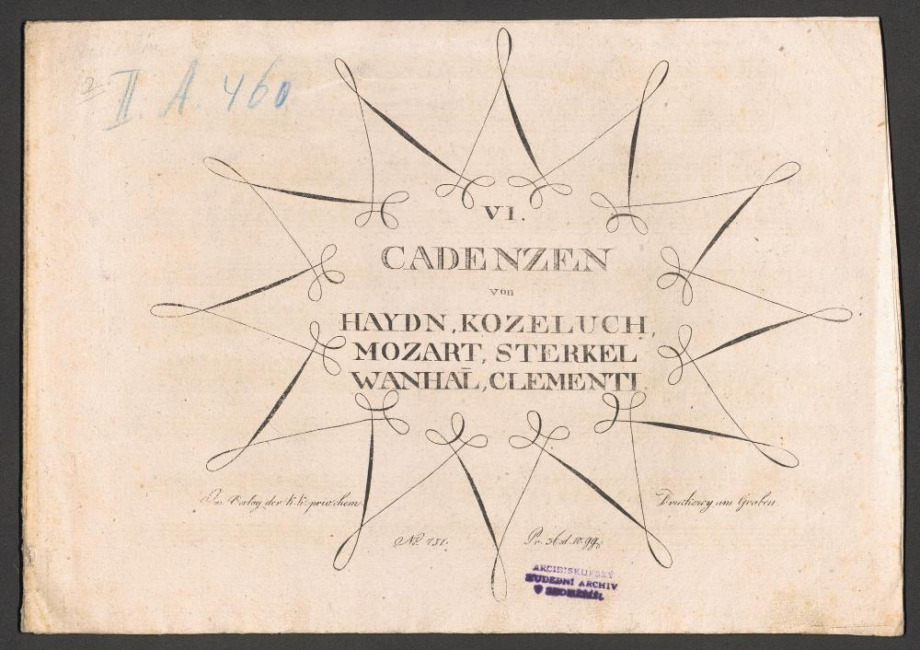 II. A. 460
VI.
CADENZEN
von
HAYDN, KOZELUCH,
MOZART, STERKEL
WANHAL, CLEMENTI.
Im Verlag der k. k. priv. chem. Druckerey am Graben
No. 751.
ARCIBISKUPSKÝ
HUDEBNÍ ARCHIV
V KROMĚŘÍŽI.